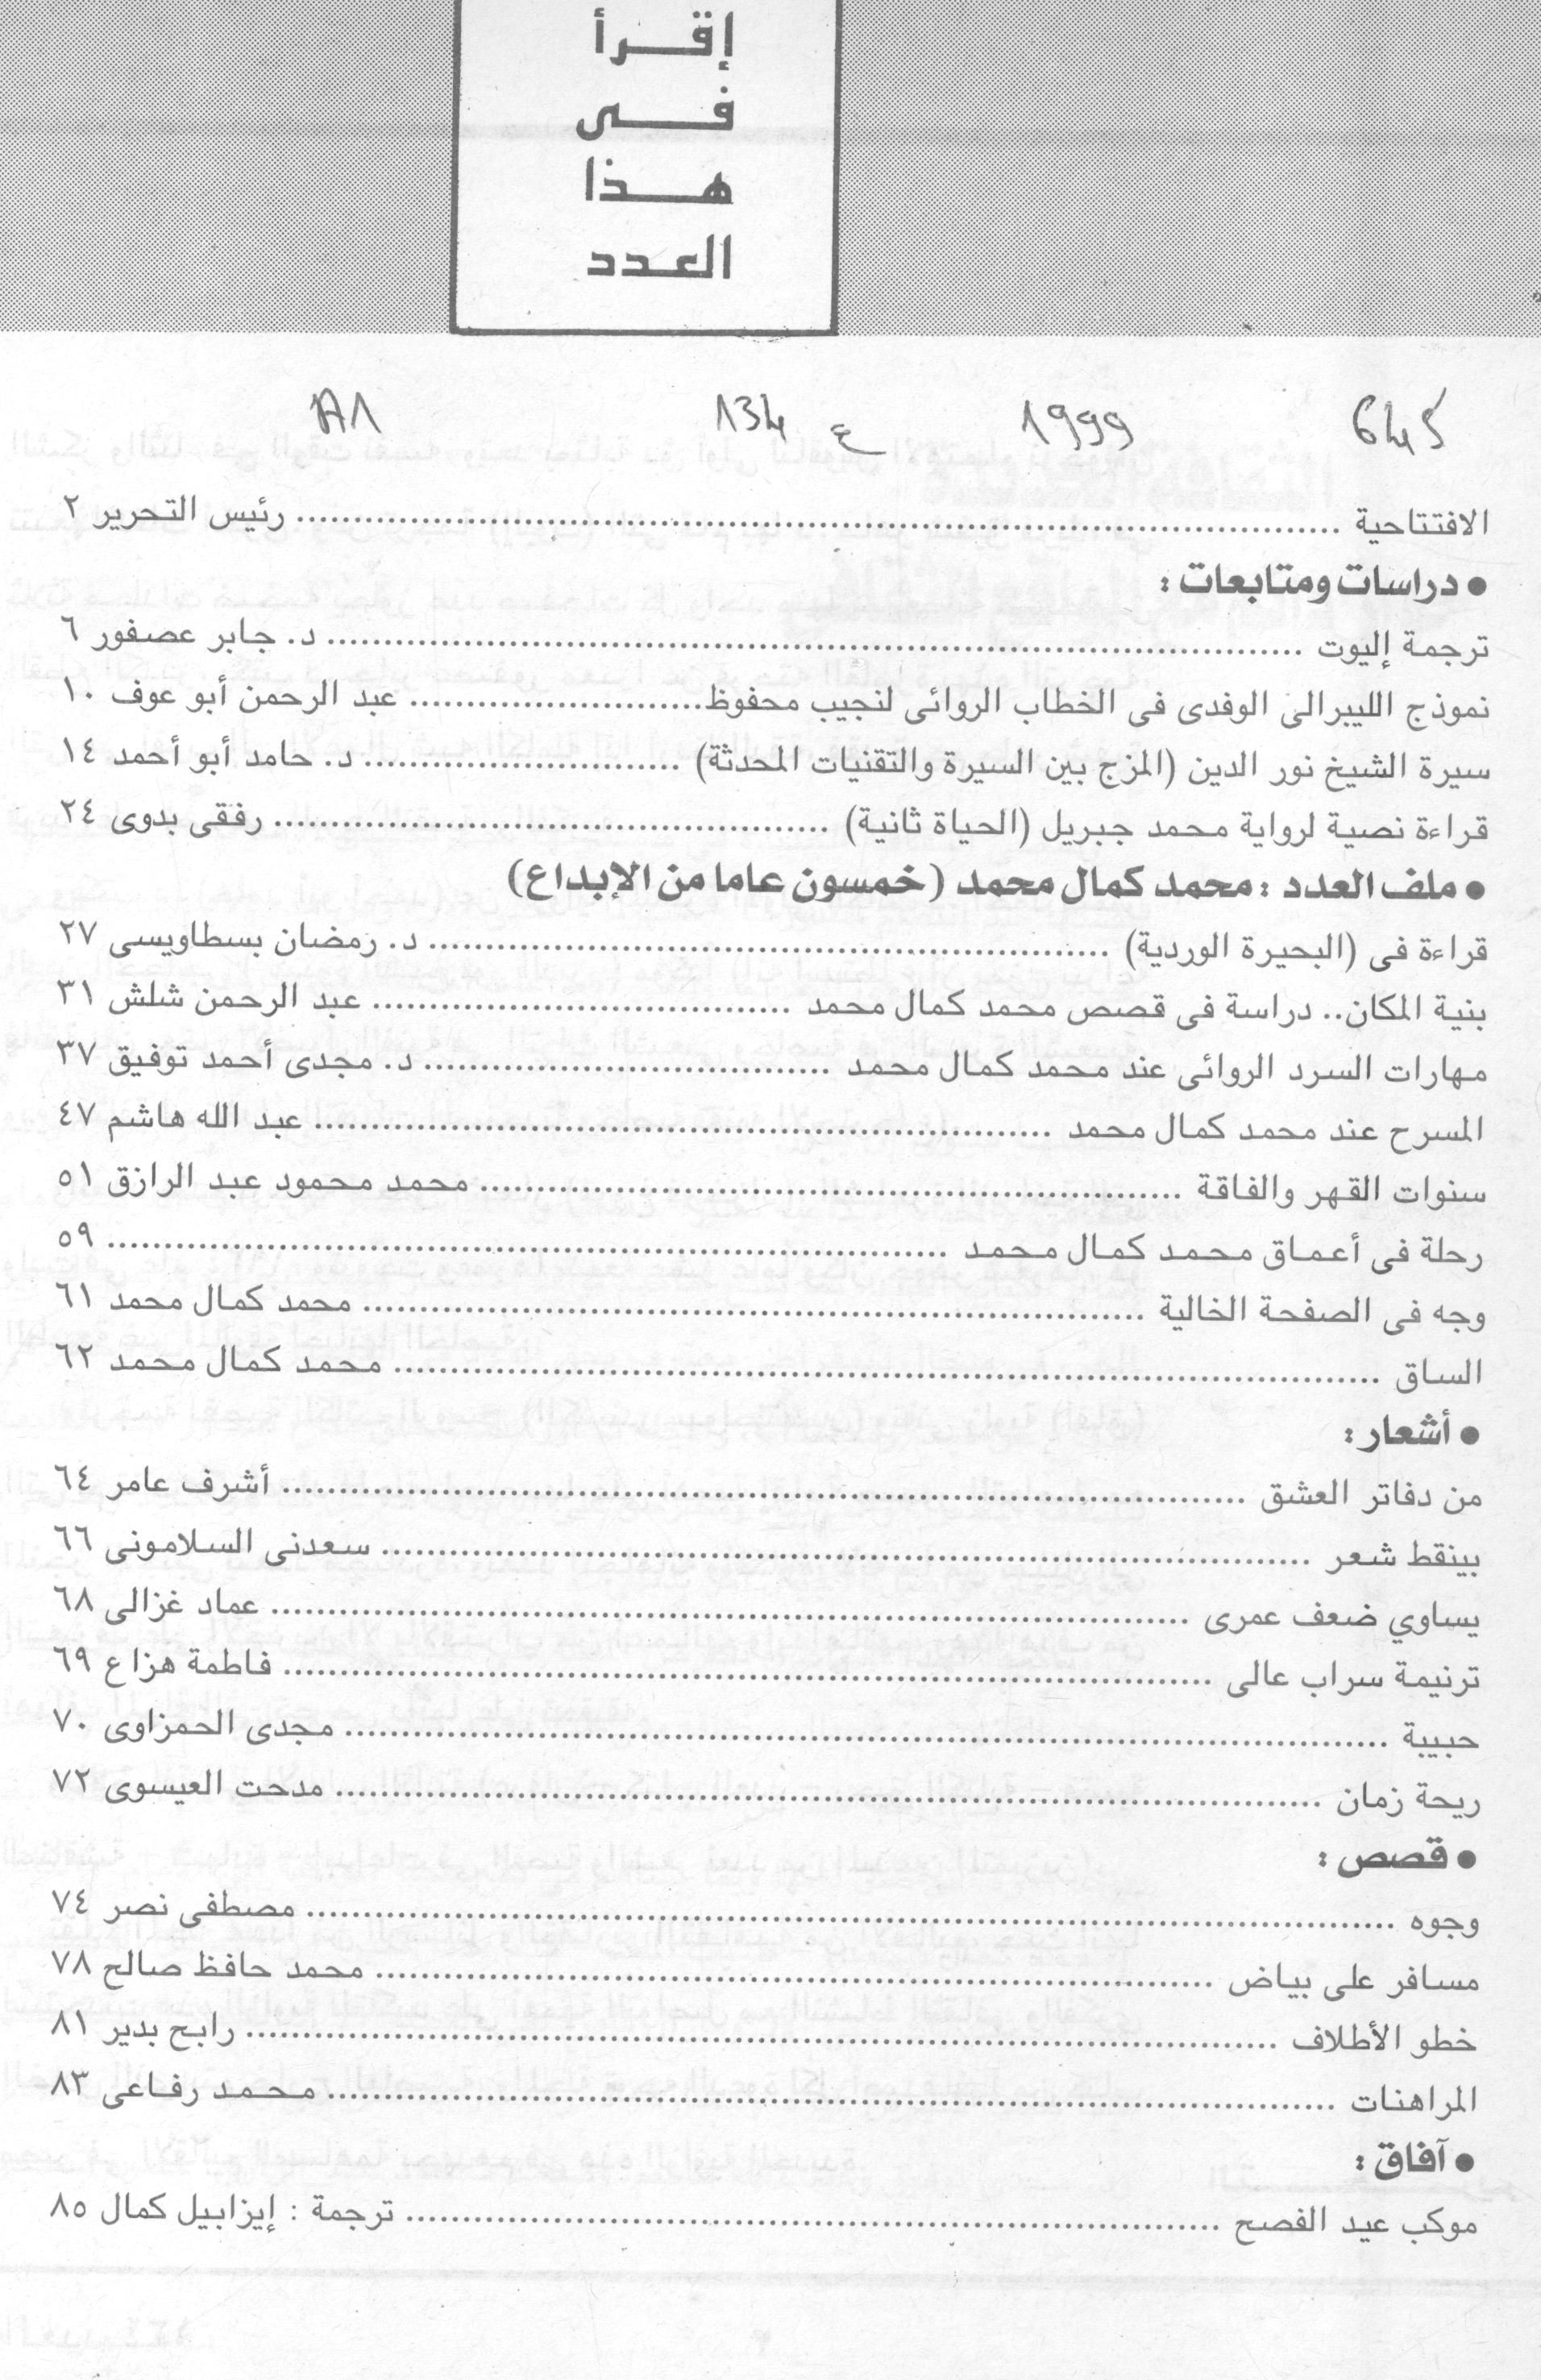 إقرأ
فى
هذا
العدد
645 1999 ع 134 A1
الافتتاحية ........ رئيس التحرير ٢
● دراسات ومتابعات :
ترجمة إليوت ........ د. جابر عصفور ٦
نموذج الليبرالى الوفدى فى الخطاب الروائى لنجيب محفوظ........ عبد الرحمن أبو عوف ١٠
سيرة الشيخ نور الدين (المزج بين السيرة والتقنيات المحدثة) ........ د. حامد أبو أحمد ١٤
قراءة نصية لرواية محمد جبريل (الحياة ثانية) ........ رفقى بدوى ٢٤
● ملف العدد : محمد كمال محمد (خمسون عاما من الإبداع)
قراءة فى (البحيرة الوردية) ........ د. رمضان بسطاويسى ٢٧
بنية المكان.. دراسة فى قصص محمد كمال محمد ........ عبد الرحمن شلش ٣١
مهارات السرد الروائى عند محمد كمال محمد ........ د. مجدى أحمد توفيق ٣٧
المسرح عند محمد كمال محمد ........ عبد الله هاشم ٤٧
سنوات القهر والفاقة ........ محمد محمود عبد الرازق ٥١
رحلة فى أعماق محمد كمال محمد ........ ٥٩
وجه فى الصفحة الخالية ........ محمد كمال محمد ٦١
الساق ........ محمد كمال محمد ٦٢
● أشعار :
من دفاتر العشق ........ أشرف عامر ٦٤
بينقط شعر ........ سعدنى السلامونى ٦٦
يساوي ضعف عمرى ........ عماد غزالى ٦٨
ترنيمة سراب عالى ........ فاطمة هزاع ٦٩
حبيبة ........ مجدى الحمزاوى ٧٠
ريحة زمان ........ مدحت العيسوى ٧٢
● قصص :
وجوه ........ مصطفى نصر ٧٤
مسافر على بياض ........ محمد حافظ صالح ٧٨
خطو الأطلاف ........ رابح بدير ٨١
المراهنات ........ محمد رفاعى ٨٣
● آفاق :
موكب عيد الفصح ........ ترجمة : إيزابيل كمال ٨٥